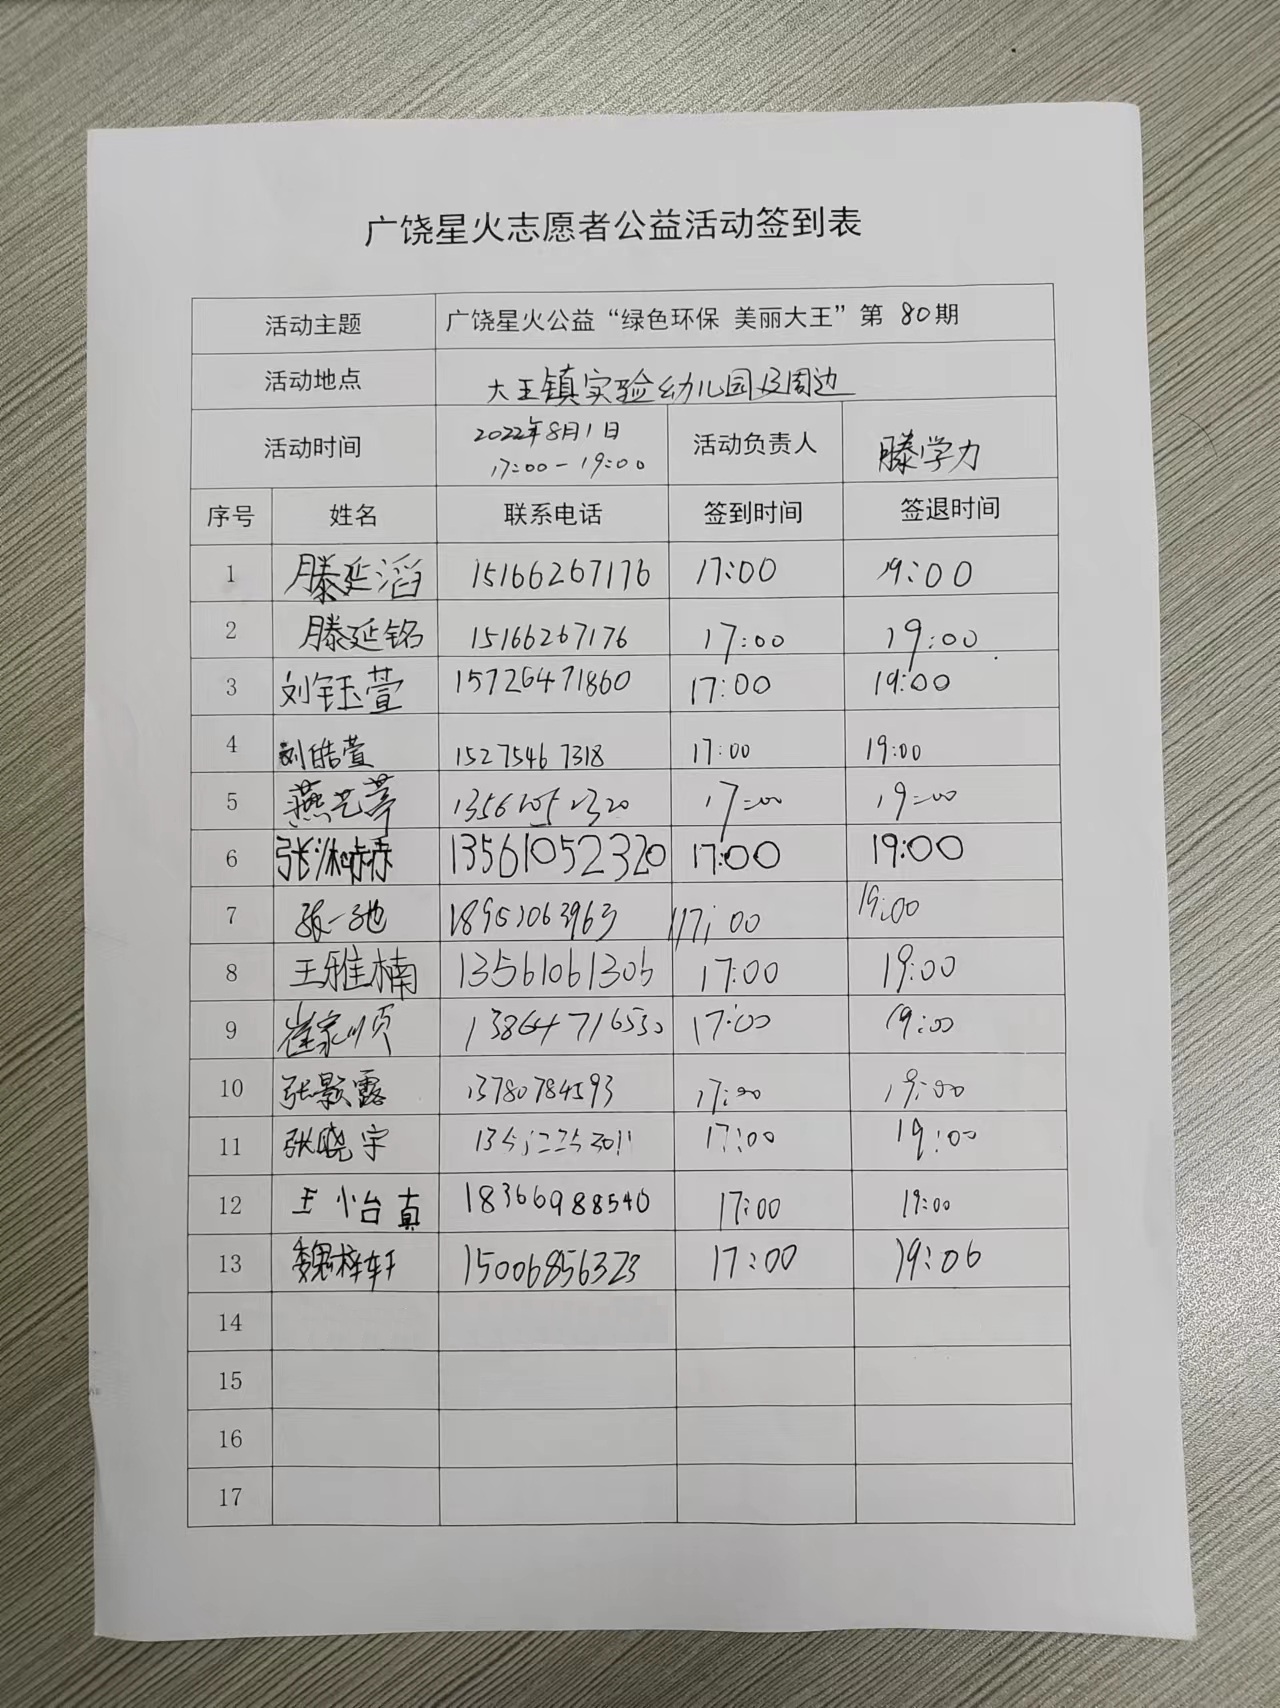 广饶星火志愿者公益活动签到表
活动主题 广饶星火公益“绿色环保 美丽大王”第 80期
活动地点 大王镇实验幼儿园及周边
活动时间 2022年8月1日 17:00-19:00 活动负责人 滕学力
序号 姓名 联系电话 签到时间 签退时间
1 滕延滔 15166267176 17:00 19:00
2 滕延铭 15166267176 17:00 19:00
3 刘钰萱 15726471860 17:00 19:00
4 刘皓萱 15275467318 17:00 19:00
5 燕艺葶 13561052320 17:00 19:00
6 13561052320 17:00 19:00
7 张一驰 18953063963 17:00 19:00
8 王雅楠 13561061306 17:00 19:00
9 崔家顺 13864716530 17:00 19:00
10 张颢露 13780784593 17:00 19:00
11 张晓宇 17:00 19:00
12 王怡真 18366988540 17:00 19:00
13 魏梓轩 15006856323 17:00 19:06
14
15
16
17